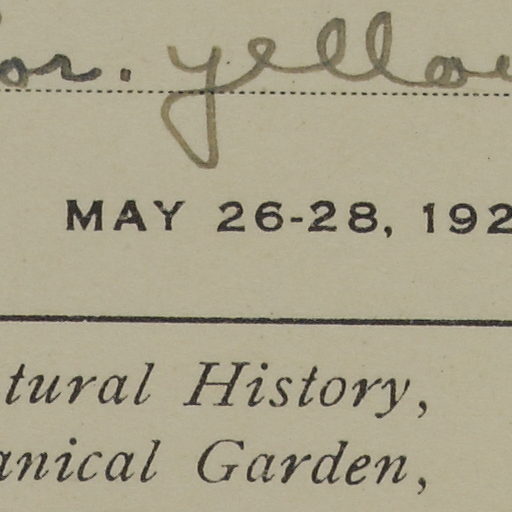 cor. yellow
MAY 26-28, 192
tural History,
anical Garden,